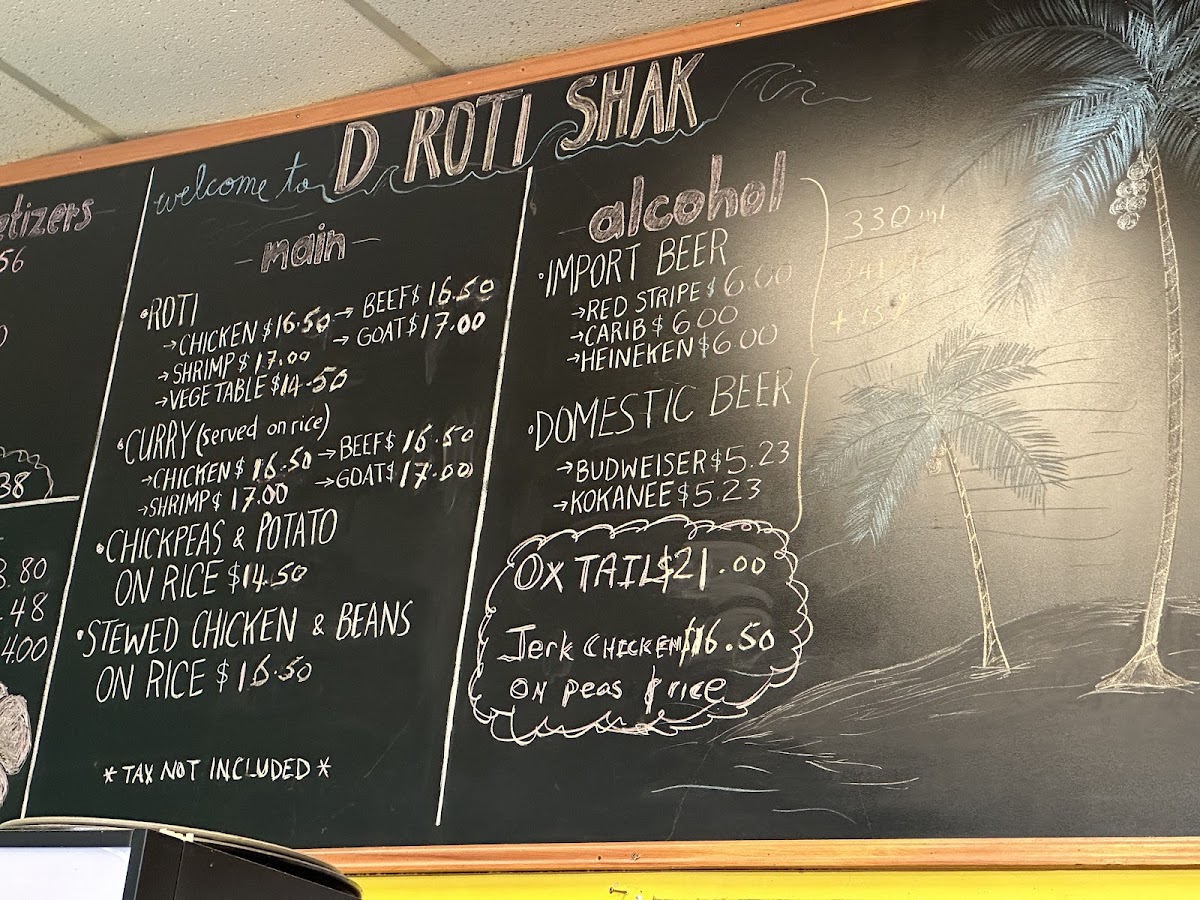 welcome to D ROTI SHAK
etizers
56
38
8.80
.48
4.00
- main -
• ROTI
→ CHICKEN $16.50 → BEEF $16.50
→ SHRIMP $17.00 → GOAT $17.00
→ VEGETABLE $14.50
• CURRY (served on rice)
→ CHICKEN $16.50 → BEEF $16.50
→ SHRIMP $17.00 → GOAT $17.00
• CHICKPEAS & POTATO
ON RICE $14.50
• STEWED CHICKEN & BEANS
ON RICE $16.50
* TAX NOT INCLUDED *
- alcohol
• IMPORT BEER
→ RED STRIPE $6.00
→ CARIB $6.00
→ HEINEKEN $6.00
• DOMESTIC BEER
→ BUDWEISER $5.23
→ KOKANEE $5.23
330 ml
OX TAIL $21.00
Jerk CHICKEN $16.50
ON Peas & rice